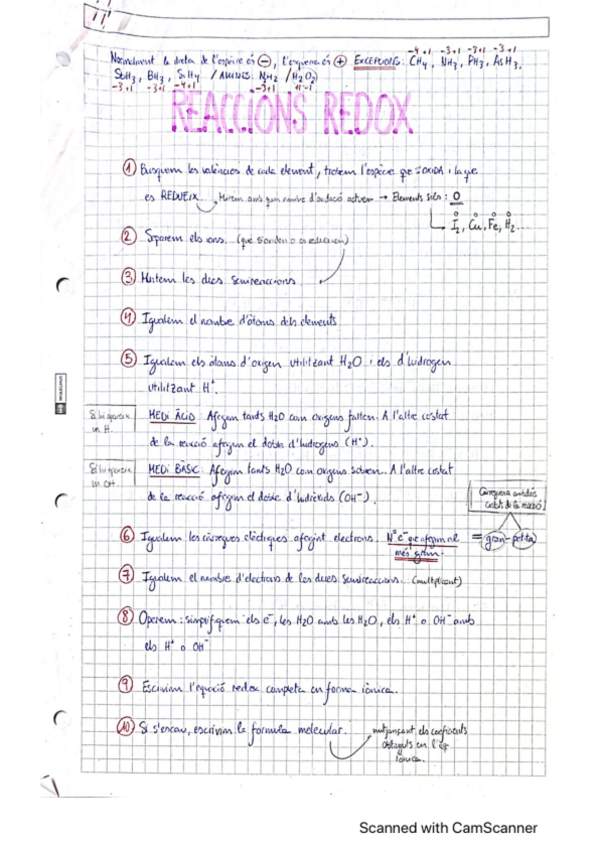 Normalment la dreta de l'espècie és ⊖, l'esquerra és ⊕ EXCEPCIONS: CH4, NH3, PH3, AsH3,
-4 +1 -3 +1 -3 +1 -3 +1
SbH3, BH3, SiH4 / AMINES: NH2 / H2O2)
-3 +1 -3 +1 -4 +1 -3 +1 +1 -1
REACCIONS REDOX
1 Busquem les valències de cada element, trobem l'espècie que s'OXIDA i la que
es REDUEIX. Mirem amb quin nombre d'oxidació actuen → Elements sols: 0
I2, Cu, Fe, H2...
2 Separem els ions. (que s'oxiden o es redueixen)
3 Muntem les dues semireaccions
4 Igualem el nombre d'àtoms dels elements
5 Igualem els àtoms d'oxigen utilitzant H2O i els d'hidrogen
utilitzant H+.
Si hi apareix
un H.
MEDI ÀCID: Afegim tants H2O com oxigens falten. A l'altre costat
de la reacció afegim el doble d'hidrogens (H+).
Si hi apareix
un OH-
MEDI BÀSIC: Afegim tants H2O com oxigens sobren. A l'altre costat
de la reacció afegim el doble d'hidròxids (OH-).
Càrrega amb dos
costats de la reacció
6 Igualem les càrregues elèctriques afegint electrons. Nº e- que afegim al
més gran. = gran - petita
7 Igualem el nombre d'electrons de les dues semireaccions. (multiplicant)
8 Operem: simplifiquem els e-, les H2O amb les H2O, els H+ o OH- amb
els H+ o OH-
9 Escrivim l'equació redox completa en forma iònica.
10 Si s'escau, escrivim la fórmula molecular.
mitjançant els coeficients
obtinguts en l'eq
iònica.
Scanned with CamScanner